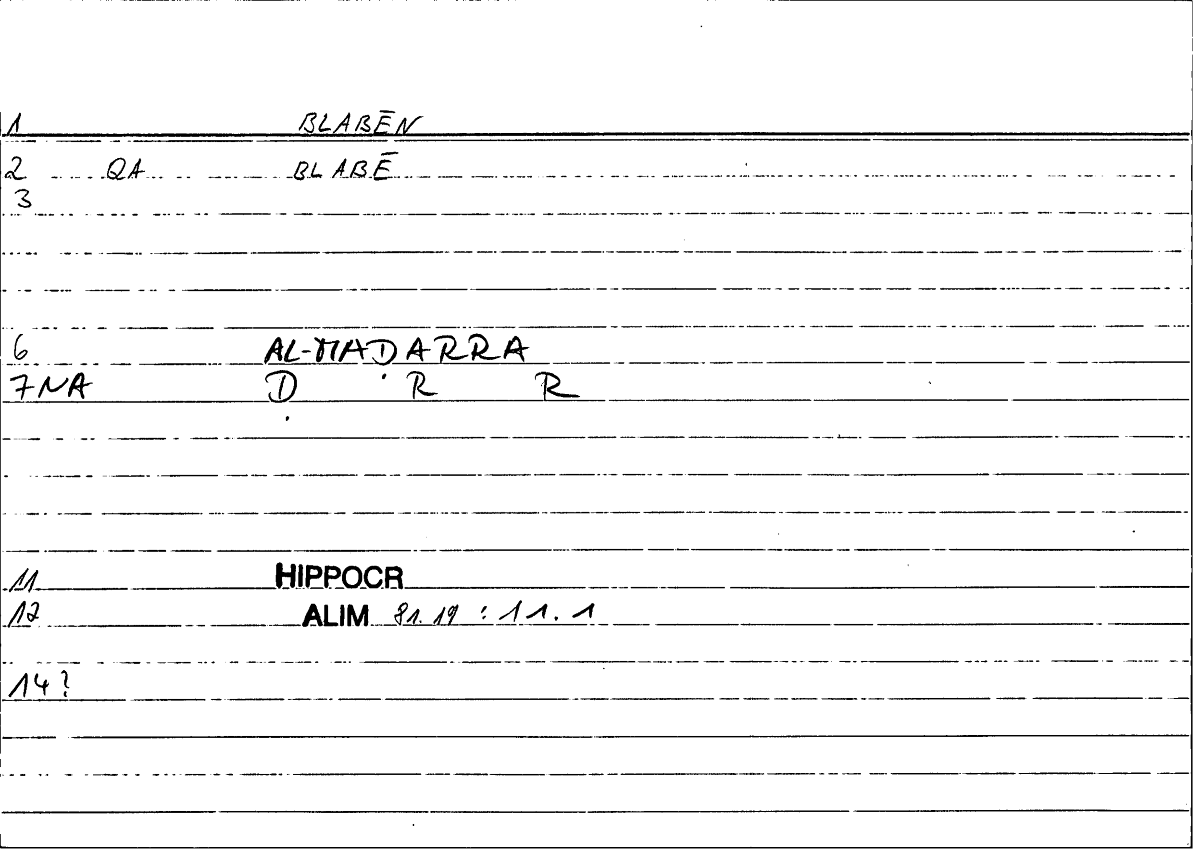 1 BLABĒN
2 QA BLABĒ
3
6 AL-MAḌARRA
7NA Ḍ R R
11 HIPPOCR
12 ALIM 81.19 : 11.1
14?